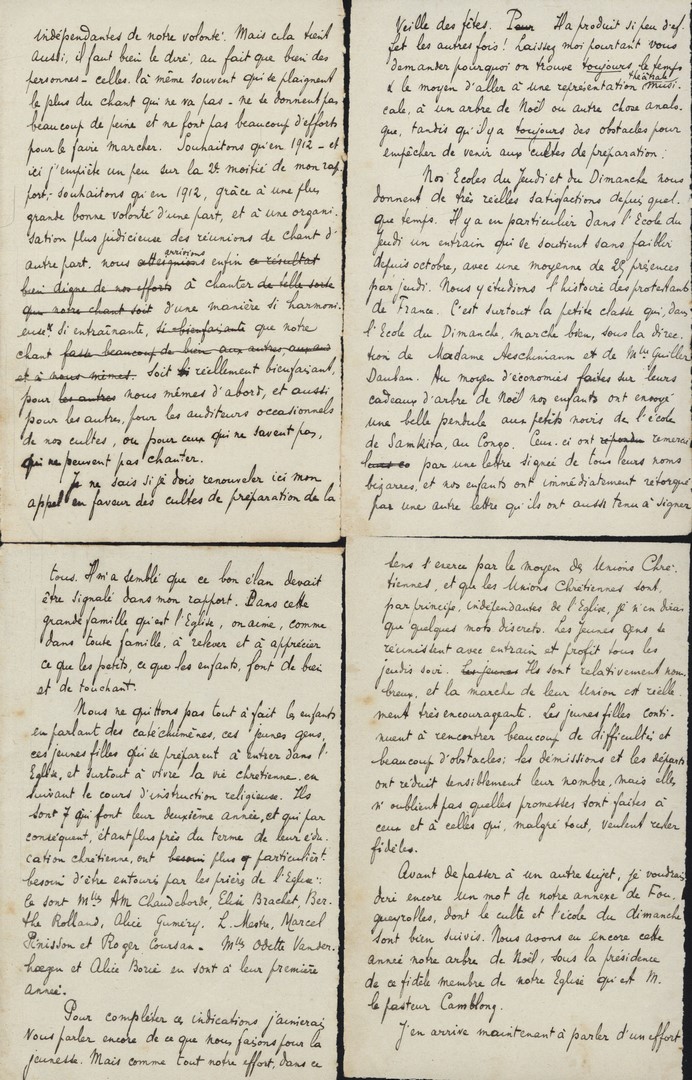 indépendantes de notre volonté. Mais cela tient
aussi, il faut bien le dire, au fait que bien des
personnes - celles-là même souvent qui se plaignent
le plus du chant qui ne va pas - ne se donnent pas
beaucoup de peine et ne font pas beaucoup d'efforts
pour le faire marcher. Souhaitons qu'en 1912 - et
ici j'empiète un peu sur la 2e moitié de mon rap
port,- souhaitons qu'en 1912, grâce à une plus
grande bonne volonté d'une part, et à une organi
sation plus judicieuse des réunions de chant d'
autre part, nous atteignions arrivions enfin ce résultat
bien digne de nos efforts à chanter de telle sorte
que notre chant soit d'une manière si harmoni
euse, si entraînante, si bienfaisante que notre
chant fasse beaucoup de bien aux autres,
et à nous mêmes. Soit si réellement bienfaisant,
pour les autres nous mêmes d'abord, et aussi
pour les autres, pour les auditeurs occasionnels
de nos cultes, ou pour ceux qui ne savent pas,
qui ne peuvent pas chanter.
Je ne sais si je dois renouveler ici mon
appel en faveur des cultes de préparation de la
Veille des fêtes. Pour Il a produit si peu d'ef-
fet les autres fois! Laissez moi pourtant vous
demander pourquoi on trouve toujours le temps
& le moyen d'aller à une représentation théâtrale musi
cale, à un arbre de Noël ou autre chose analo-
gue, tandis qu'il y a toujours des obstacles pour
empêcher de venir aux cultes de préparation.
Nos Ecoles du Jeudi et du Dimanche nous
donnent de très réelles satisfactions depuis quel-
que temps. Il y a en particulier dans l'Ecole du
Jeudi un entrain qui se soutient sans faiblir
depuis octobre, avec une moyenne de 25 présences
par jeudi. Nous y étudions l'histoire des protestants
de France. C'est surtout la petite classe qui, dans
l'Ecole du Dimanche, marche bien, sous la direc-
tion de Madame Aeschimann et de Mlle Guiller
Dauban. Au moyen d'économies faites sur leurs
cadeaux d'arbre de Noël nos enfants ont envoyé
une belle pendule aux petits noirs de l'école
de Samkita, au Congo. Ceux-ci ont répondu remercié
par une lettre signée de tous leurs noms
bizarres, et nos enfants ont immédiatement rétorqué
par une autre lettre qu'ils ont aussi tenu à signer
tous. Il m'a semblé que ce bon élan devait
être signalé dans mon rapport. Dans cette
grande famille qu'est l'Eglise, on aime, comme
dans toute famille, à relever et à apprécier
ce que les petits, ce que les enfants, font de bien
et de touchant.
Nous ne quittons pas tout à fait les enfants
en parlant des catéchumènes, ces jeunes gens,
ces jeunes filles qui se préparent à entrer dans l'
Eglise, et surtout à vivre la vie chrétienne, en
suivant le cours d'instruction religieuse. Ils
sont 7 qui font leur deuxième année, et qui par
conséquent, étant plus près du terme de leur édu
cation chrétienne, ont besoin plus particulièrt
besoin d'être entouré par les prières de l'Eglise:
ce sont Mlles AM Chaudordo, Elise Brachet Ber-
the Rolland, Alice Guméry, L. Mestre, Marcel
Pinisson et Roger Coursan - Mlles Odette Vander-
haegen et Alice Borie en sont à leur première
année.
Pour compléter ces indications j'aimerais
vous parler encore de ce que nous faisons pour la
jeunesse. Mais comme tout notre effort, dans ce
sens s'exerce par le moyen des Unions Chré-
tiennes, et que les Unions Chrétiennes sont,
par principe, indépendantes de l'Eglise, je n'en dirai
que quelques mots discrets. Les Jeunes Gens se
réunissent avec entrain et profit tous les
jeudis soir. Les jeunes Ils sont relativement nom-
breux, et la marche de leur Union est réelle-
ment très encourageante. Les jeunes filles conti-
nuent à rencontrer beaucoup de difficultés et
beaucoup d'obstacles; les démissions et les départs
ont réduit sensiblement leur nombre, mais elles
n'oublient pas quelles promesses sont faites à
ceux et à celles qui, malgré tout, veulent rester
fidèles.
Avant de passer à un autre sujet, je voudrais
dire encore un mot de notre annexe de Fou-
gueyrolles, dont le culte et l'école du dimanche
sont bien suivis. Nous avons eu encore cette
année notre arbre de Noël, sous la présidence
de ce fidèle membre de notre Eglise qui est M.
le pasteur Camblong.
J'en arrive maintenant à parler d'un effort